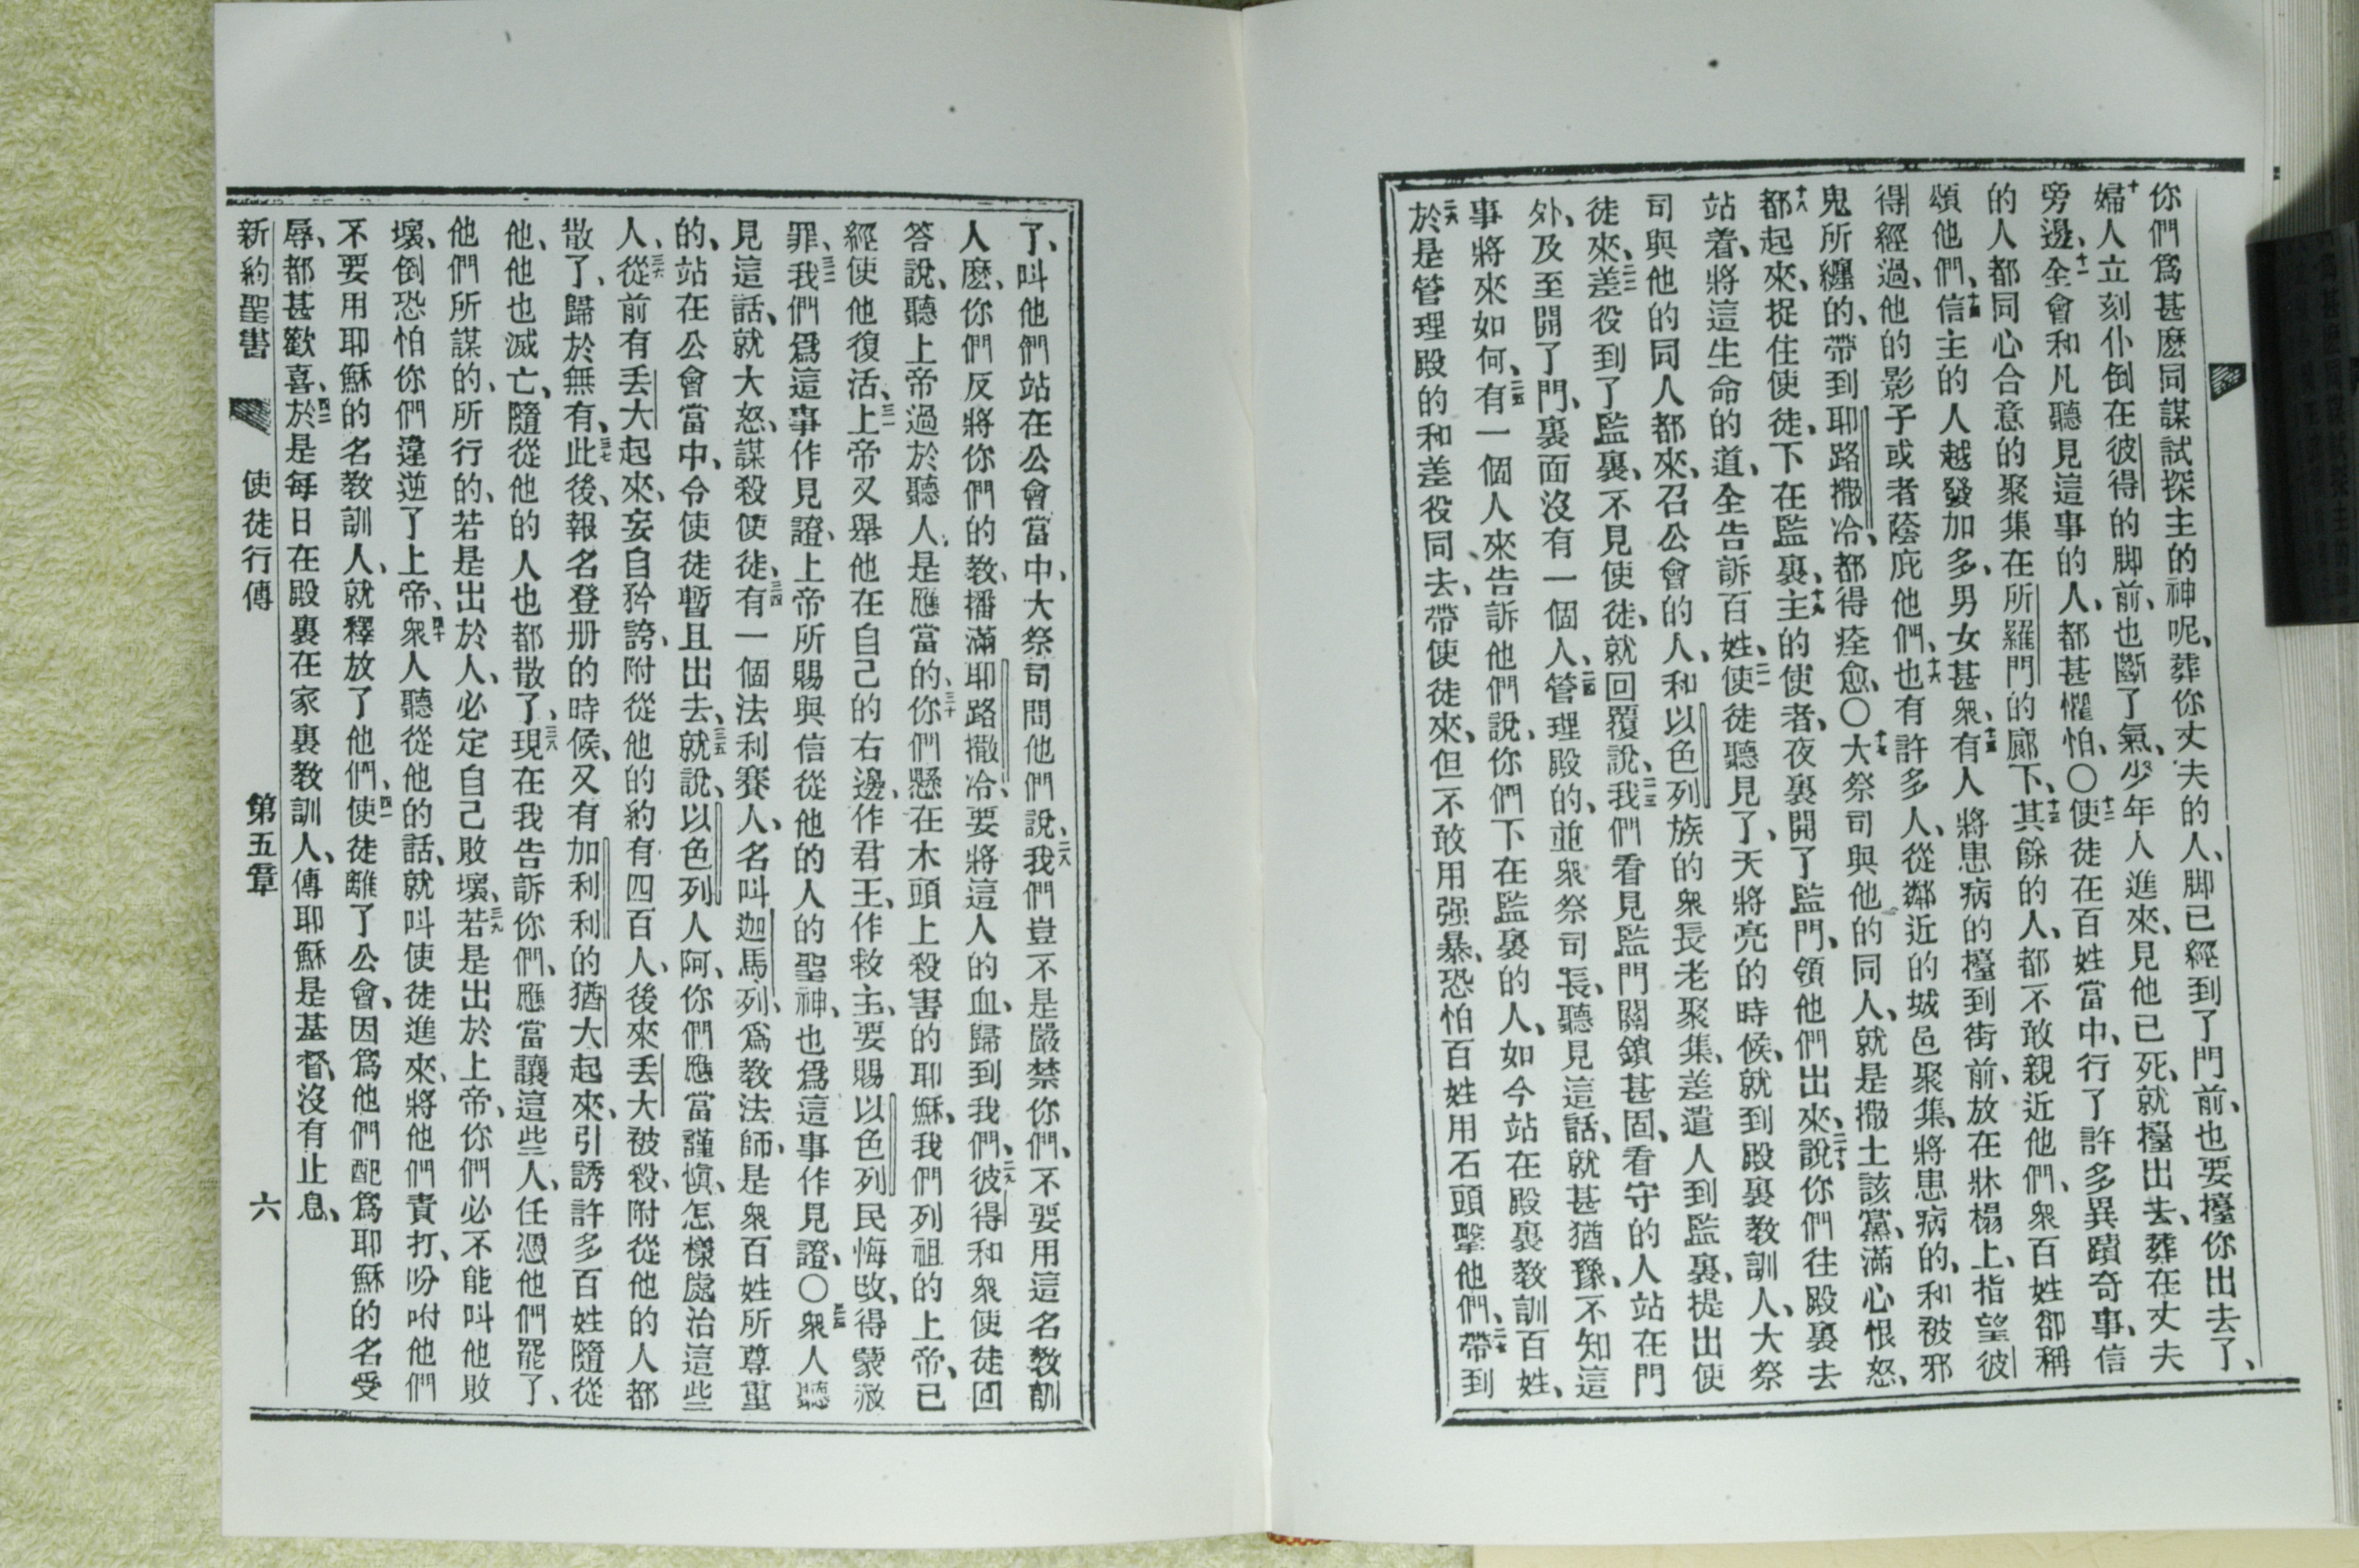 你們爲甚麽同謀試探主的神呢、葬你丈夫的人、脚已經到了門前、也要擡你出去了、
十婦人立刻仆倒在彼得的脚前、也斷了氣、少年人進來、見他已死、就擡出去、葬在丈夫
旁邊、十一全會和凡聽見這事的人、都甚懼怕、〇十二使徒在百姓當中、行了許多異蹟奇事、信
的人都同心合意的聚集在所羅門的廊下、十三其餘的人、都不敢親近他們、衆百姓卻稱
頌他們、十四信主的人越發加多、男女甚衆、十五有人將患病的擡到街前、放在牀榻上、指望彼
得經過、他的影子或者蔭庇他們、十六也有許多人、從鄰近的城邑聚集、將患病的、和被邪
鬼所纏的、帶到耶路撒冷、都得痊愈、〇十七大祭司與他的同人、就是撒土該黨、滿心恨怒、
十八都起來、捉住使徒、下在監裏、十九主的使者、夜裏開了監門、領他們出來、說、二十你們往殿裏去
站着、將這生命的道、全告訴百姓、二一使徒聽見了、天將亮的時候、就到殿裏教訓人、大祭
司與他的同人都來、召公會的人、和以色列族的衆長老聚集、差遣人到監裏、提出使
徒來、二二差役到了監裏、不見使徒、就回覆說、二三我們看見監門關鎖甚固、看守的人站在門
外、及至開了門、裏面沒有一個人、二四管理殿的、並衆祭司長、聽見這話、就甚猶豫、不知這
事將來如何、二五有一個人來告訴他們說、你們下在監裏的人、如今站在殿裏教訓百姓、
二六於是管理殿的和差役同去、帶使徒來、但不敢用强暴、恐怕百姓用石頭擊他們、二七帶到
了、叫他們站在公會當中、大祭司問他們說、二八我們豈不是嚴禁你們、不要用這名教訓
人麽、你們反將你們的教、播滿耶路撒冷、要將這人的血、歸到我們、二九彼得和衆使徒回
答說、聽上帝過於聽人、是應當的、三十你們懸在木頭上殺害的耶穌、我們列祖的上帝、已
經使他復活、三一上帝又舉他在自己的右邊、作君王、作救主、要賜以色列民悔改、得蒙赦
罪、三二我們爲這事作見證、上帝所賜與信從他的人的聖神、也爲這事作見證、〇三三衆人聽
見這話、就大怒、謀殺使徒、三四有一個法利賽人、名叫迦馬列、爲教法師、是衆百姓所尊重
的、站在公會當中、令使徒暫且出去、三五就說、以色列人阿、你們應當謹愼、怎樣處治這些
人、三六從前有丢大起來、妄自矜誇、附從他的約有四百人、後來丢大被殺、附從他的人都
散了、歸於無有、三七此後、報名登册的時候、又有加利利的猶大起來、引誘許多百姓隨從
他、他也滅亡、隨從他的人也都散了、三八現在我告訴你們、應當讓這些人、任憑他們罷了、
他們所謀的、所行的、若是出於人、必定自己敗壞、三九若是出於上帝、你們必不能叫他敗
壞、倒恐怕你們違逆了上帝、四十衆人聽從他的話、就叫使徒進來、將他們責打、吩咐他們
不要用耶穌的名教訓人、就釋放了他們、四一使徒離了公會、因爲他們配爲耶穌的名受
辱、都甚歡喜、四二於是每日在殿裏在家裏教訓人、傳耶穌是基督、沒有止息、
新約聖書 使徒行傳 第五章 六